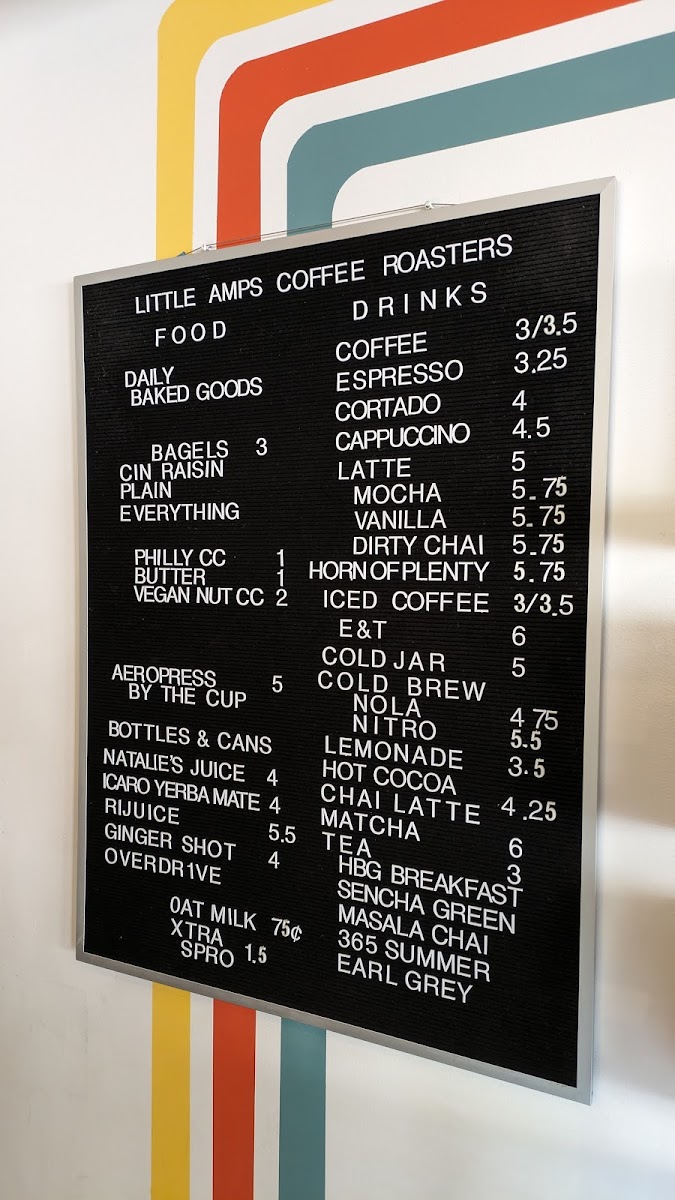 LITTLE AMPS COFFEE ROASTERS
FOOD
DAILY
BAKED GOODS
BAGELS 3
CIN RAISIN
PLAIN
EVERYTHING
PHILLY CC 1
BUTTER 1
VEGAN NUT CC 2
AEROPRESS 5
BY THE CUP
BOTTLES & CANS
NATALIE'S JUICE 4
ICARO YERBA MATE 4
RIJUICE 5.5
GINGER SHOT 4
OVERDR1VE
OAT MILK 75¢
XTRA
SPRO 1.5
DRINKS
COFFEE 3/3.5
ESPRESSO 3.25
CORTADO 4
CAPPUCCINO 4.5
LATTE 5
MOCHA 5.75
VANILLA 5.75
DIRTY CHAI 5.75
HORN OF PLENTY 5.75
ICED COFFEE 3/3.5
E&T 6
COLD JAR 5
COLD BREW
NOLA 4 75
NITRO 5.5
LEMONADE 3.5
HOT COCOA
CHAI LATTE 4.25
MATCHA 6
TEA 3
HBG BREAKFAST
SENCHA GREEN
MASALA CHAI
365 SUMMER
EARL GREY